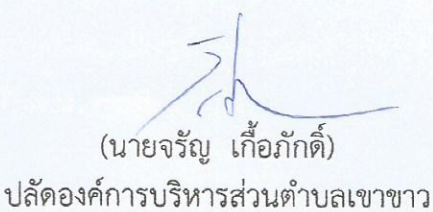 (นายจรัญ เกื้อภักดิ์)
ปลัดองค์การบริหารส่วนตำบลเขาขาว